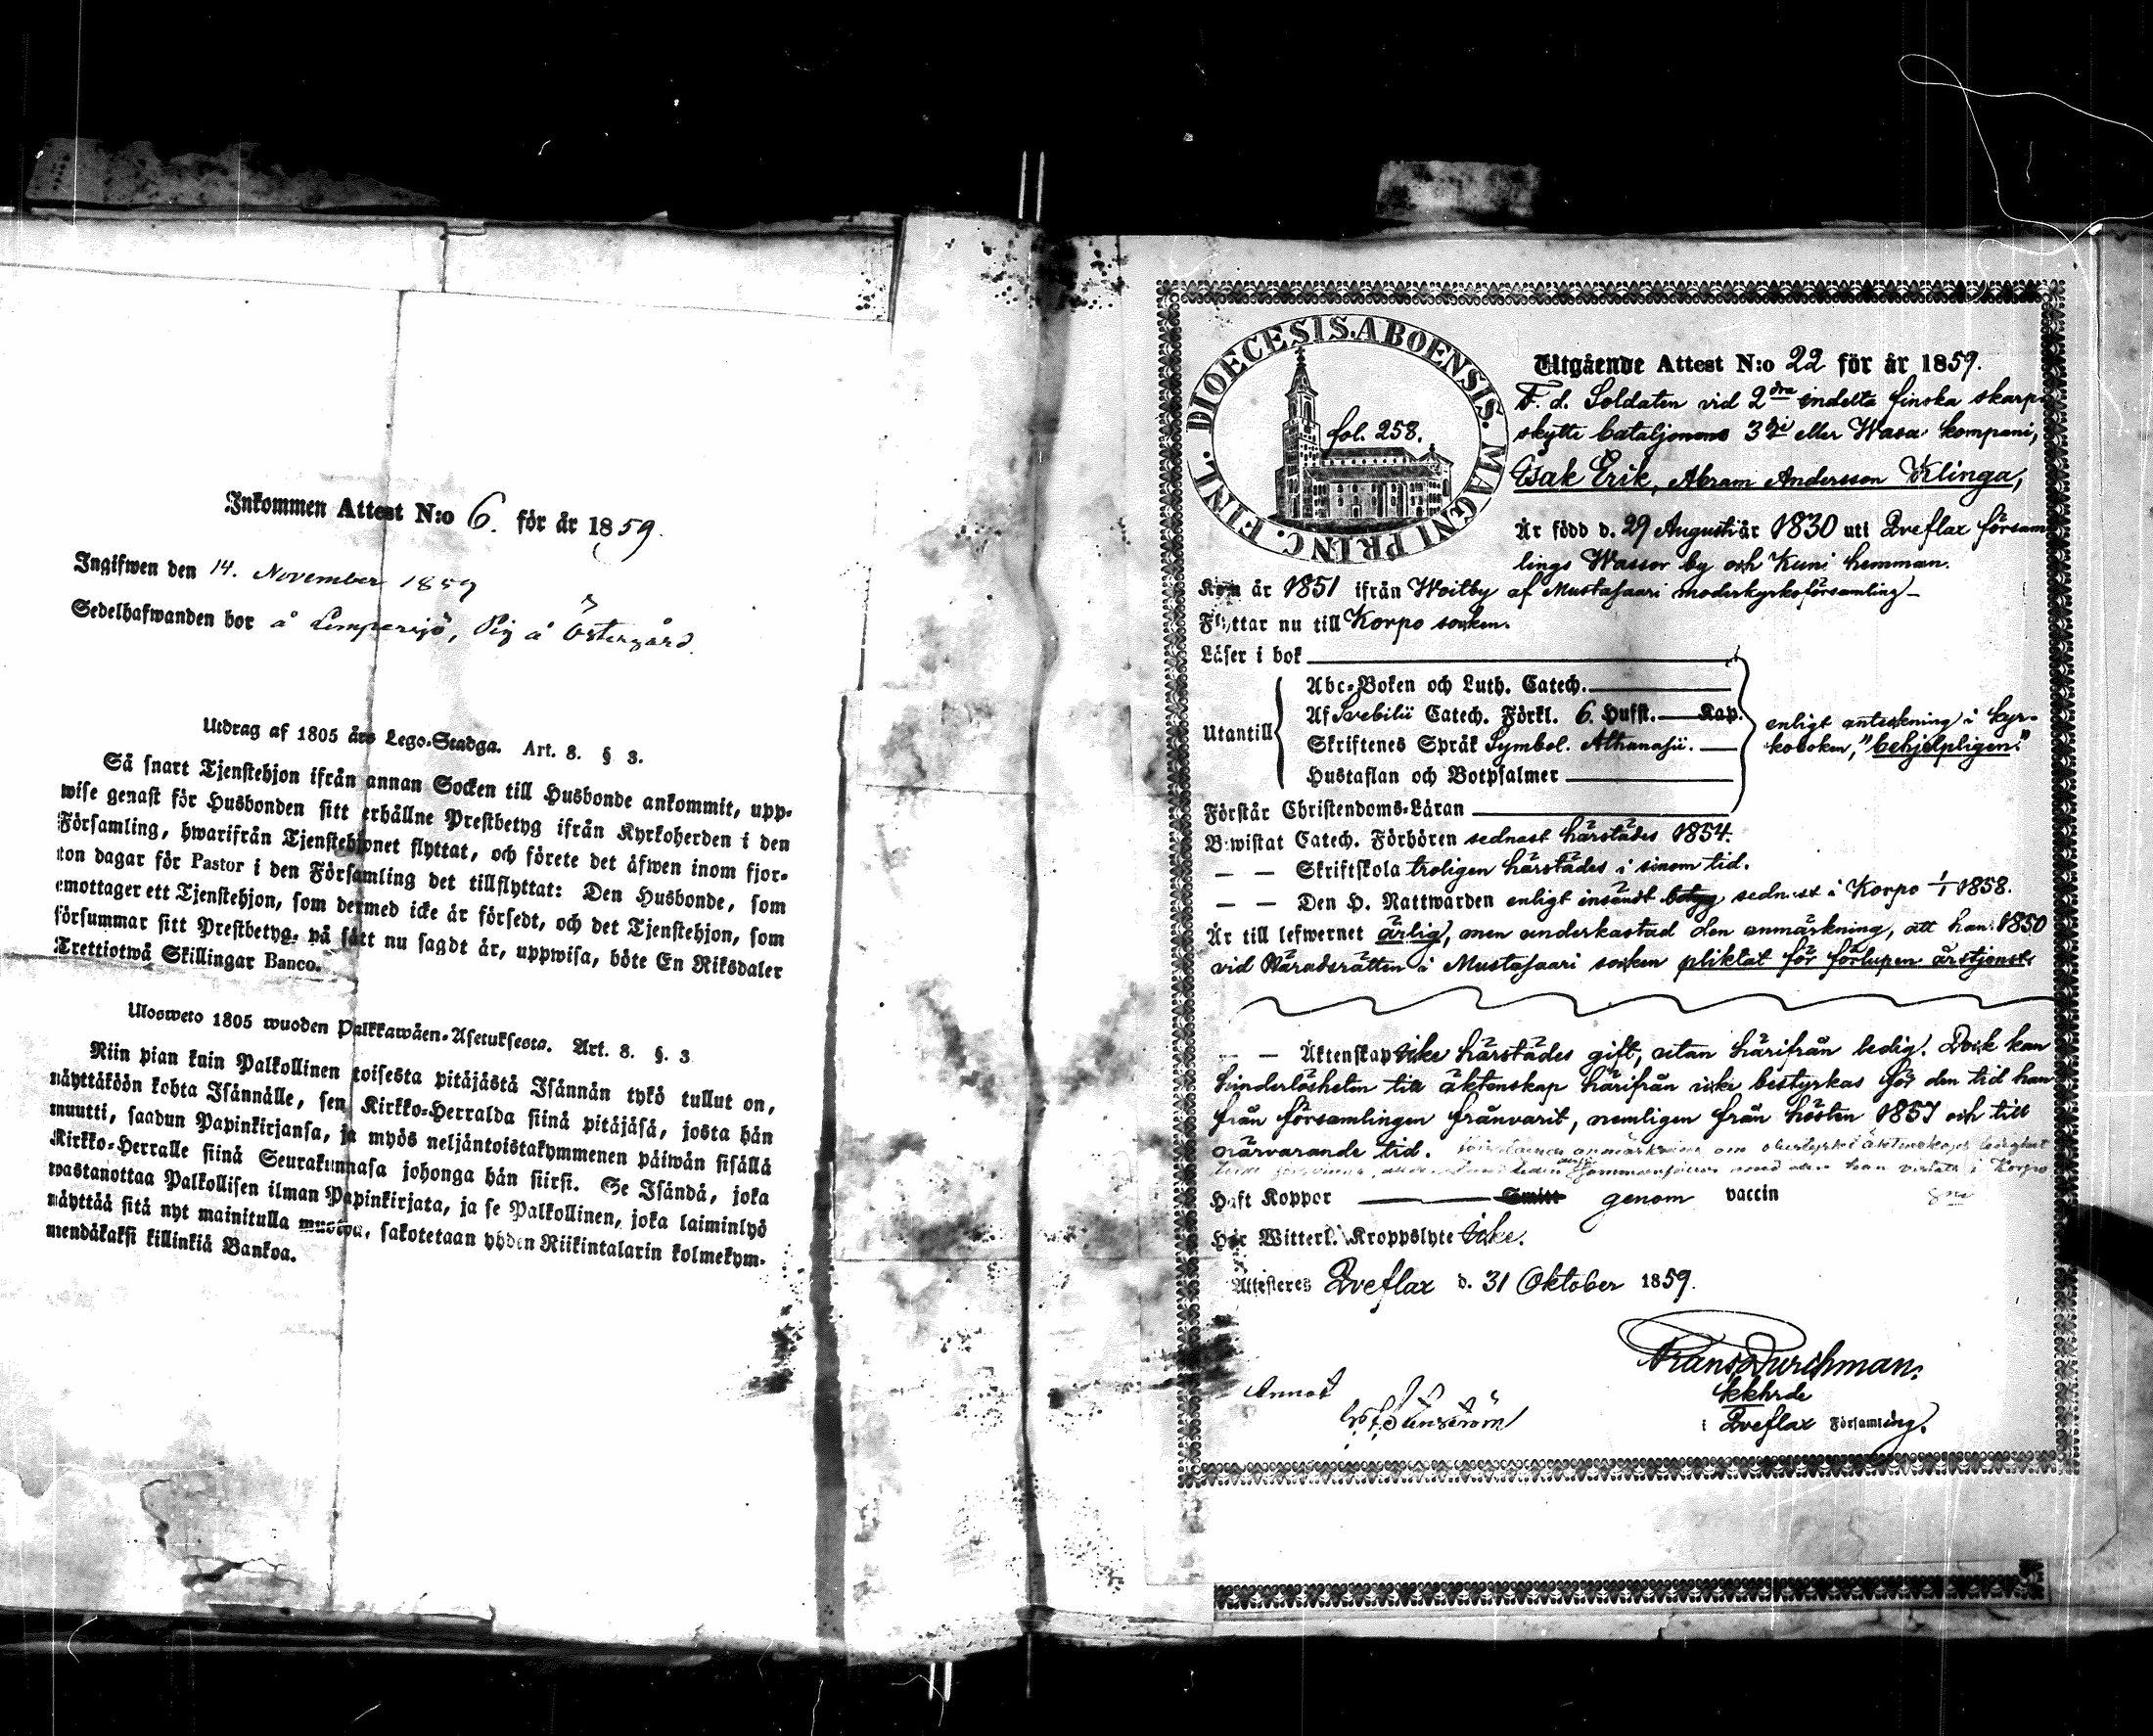 Inkommen Attest N:o 6. för år 1859.
Ingifwen den 14. November 1859
Sedelhafwanden bor å Lempersjö, Pig å Östergård.
Utdrag af 1805 års Lego-Stadga. Art. 8. § 3.
Så snart Tjenstehjon ifrån annan Socken till Husbonde ankommit, upp-
wise genast för Husbonden sitt erhållne Prestbetyg ifrån Kyrkoherden i den
Församling, hwarifrån Tjenstehjonet flyttat, och förete det äfwen inom fjor-
ton dagar för Pastor i den Församling det tillflyttat: Den Husbonde, som
emottager ett Tjenstehjon, som dermed icke är försedt, och det Tjenstehjon, som
försummar sitt Prestbetyg, på sätt nu sagdt är, uppwisa, böte En Riksdaler
Trettiotwå Skillingar Banco.
Ulosweto 1805 wuoden Palkkawäen-Asetuksesta. Art. 8. §. 3
Niin pian kuin Palkollinen toisesta pitäjästä Isännän tykö tullut on,
näyttäköön kohta Isännälle, sen Kirkko-Herralda siinä pitäjäsä, josta hän
muutti, saadun Papinkirjansa, ja myös neljäntoistakymmenen päiwän sisällä
Kirkko-Herralle siinä Seurakunnasa johonga hän siirsi. Se Isändä, joka
wastanottaa Palkollisen ilman Papinkirjata, ja se Palkollinen, joka laiminlyö
näyttää sitä nyt mainitulla muotoa, sakotetaan yhden Riikintalarin kolmekym-
mendäkaksi killinkiä Bankoa.
DIOECESIS. ABOENSIS. MAGNI PRINC. FINL.
fol. 258.
Utgående Attest N:o 22 för år 1859.
F. d. Soldaten vid 2dra indelta finska skarp-
skytte bataljonens 3dje eller Wasa kompani,
Isak Erik, Abram Andersson Klinga,
Är född d. 29 Augusti år 1830 uti Qveflax försam
lings Wassor by och Kuni hemman.
Kom år 1851 ifrån Woitby af Mustasaari moderkyrkoförsamling
Flyttar nu till Korpo socken.
Läser i bok
Utantill
Abc-Boken och Luth. Catech.
Af Svebilii Catech. Förkl. 6. Hufst. Kap.
Skriftenes Språk Symbol. Athanasii.
Hustaflan och Botpsalmer
enligt anteckning i kyr-
koboken, "behjelpligen."
Förstår Christendoms-Läran
Bewistat Catech. Förhören sednast härstädes 1854.
— — Skriftskola troligen härstädes i sinom tid.
— — Den H. Nattwarden enligt insändt betyg sednast i Korpo 1/1 1858.
Är till lefwernet ärlig, men underkastad den anmärkning, att han 1850
vid Häradsrätten i Mustasaari socken pliktat för förlupen årstjenst.
— — Äktenskap icke härstädes gift, utan härifrån ledig. Dock kan
hinderlösheten till äktenskap härifrån icke bestyrkas för den tid han
från församlingen frånvarit, nemligen från hösten 1857 och till
närvarande tid.
Haft Koppor Smitt genom vaccin
Har Witterl. Kroppslyte Icke.
Attesteras Qveflax d. 31 Oktober 1859.
Frans Durchman.
Kkhrde
i Qveflax Församling.